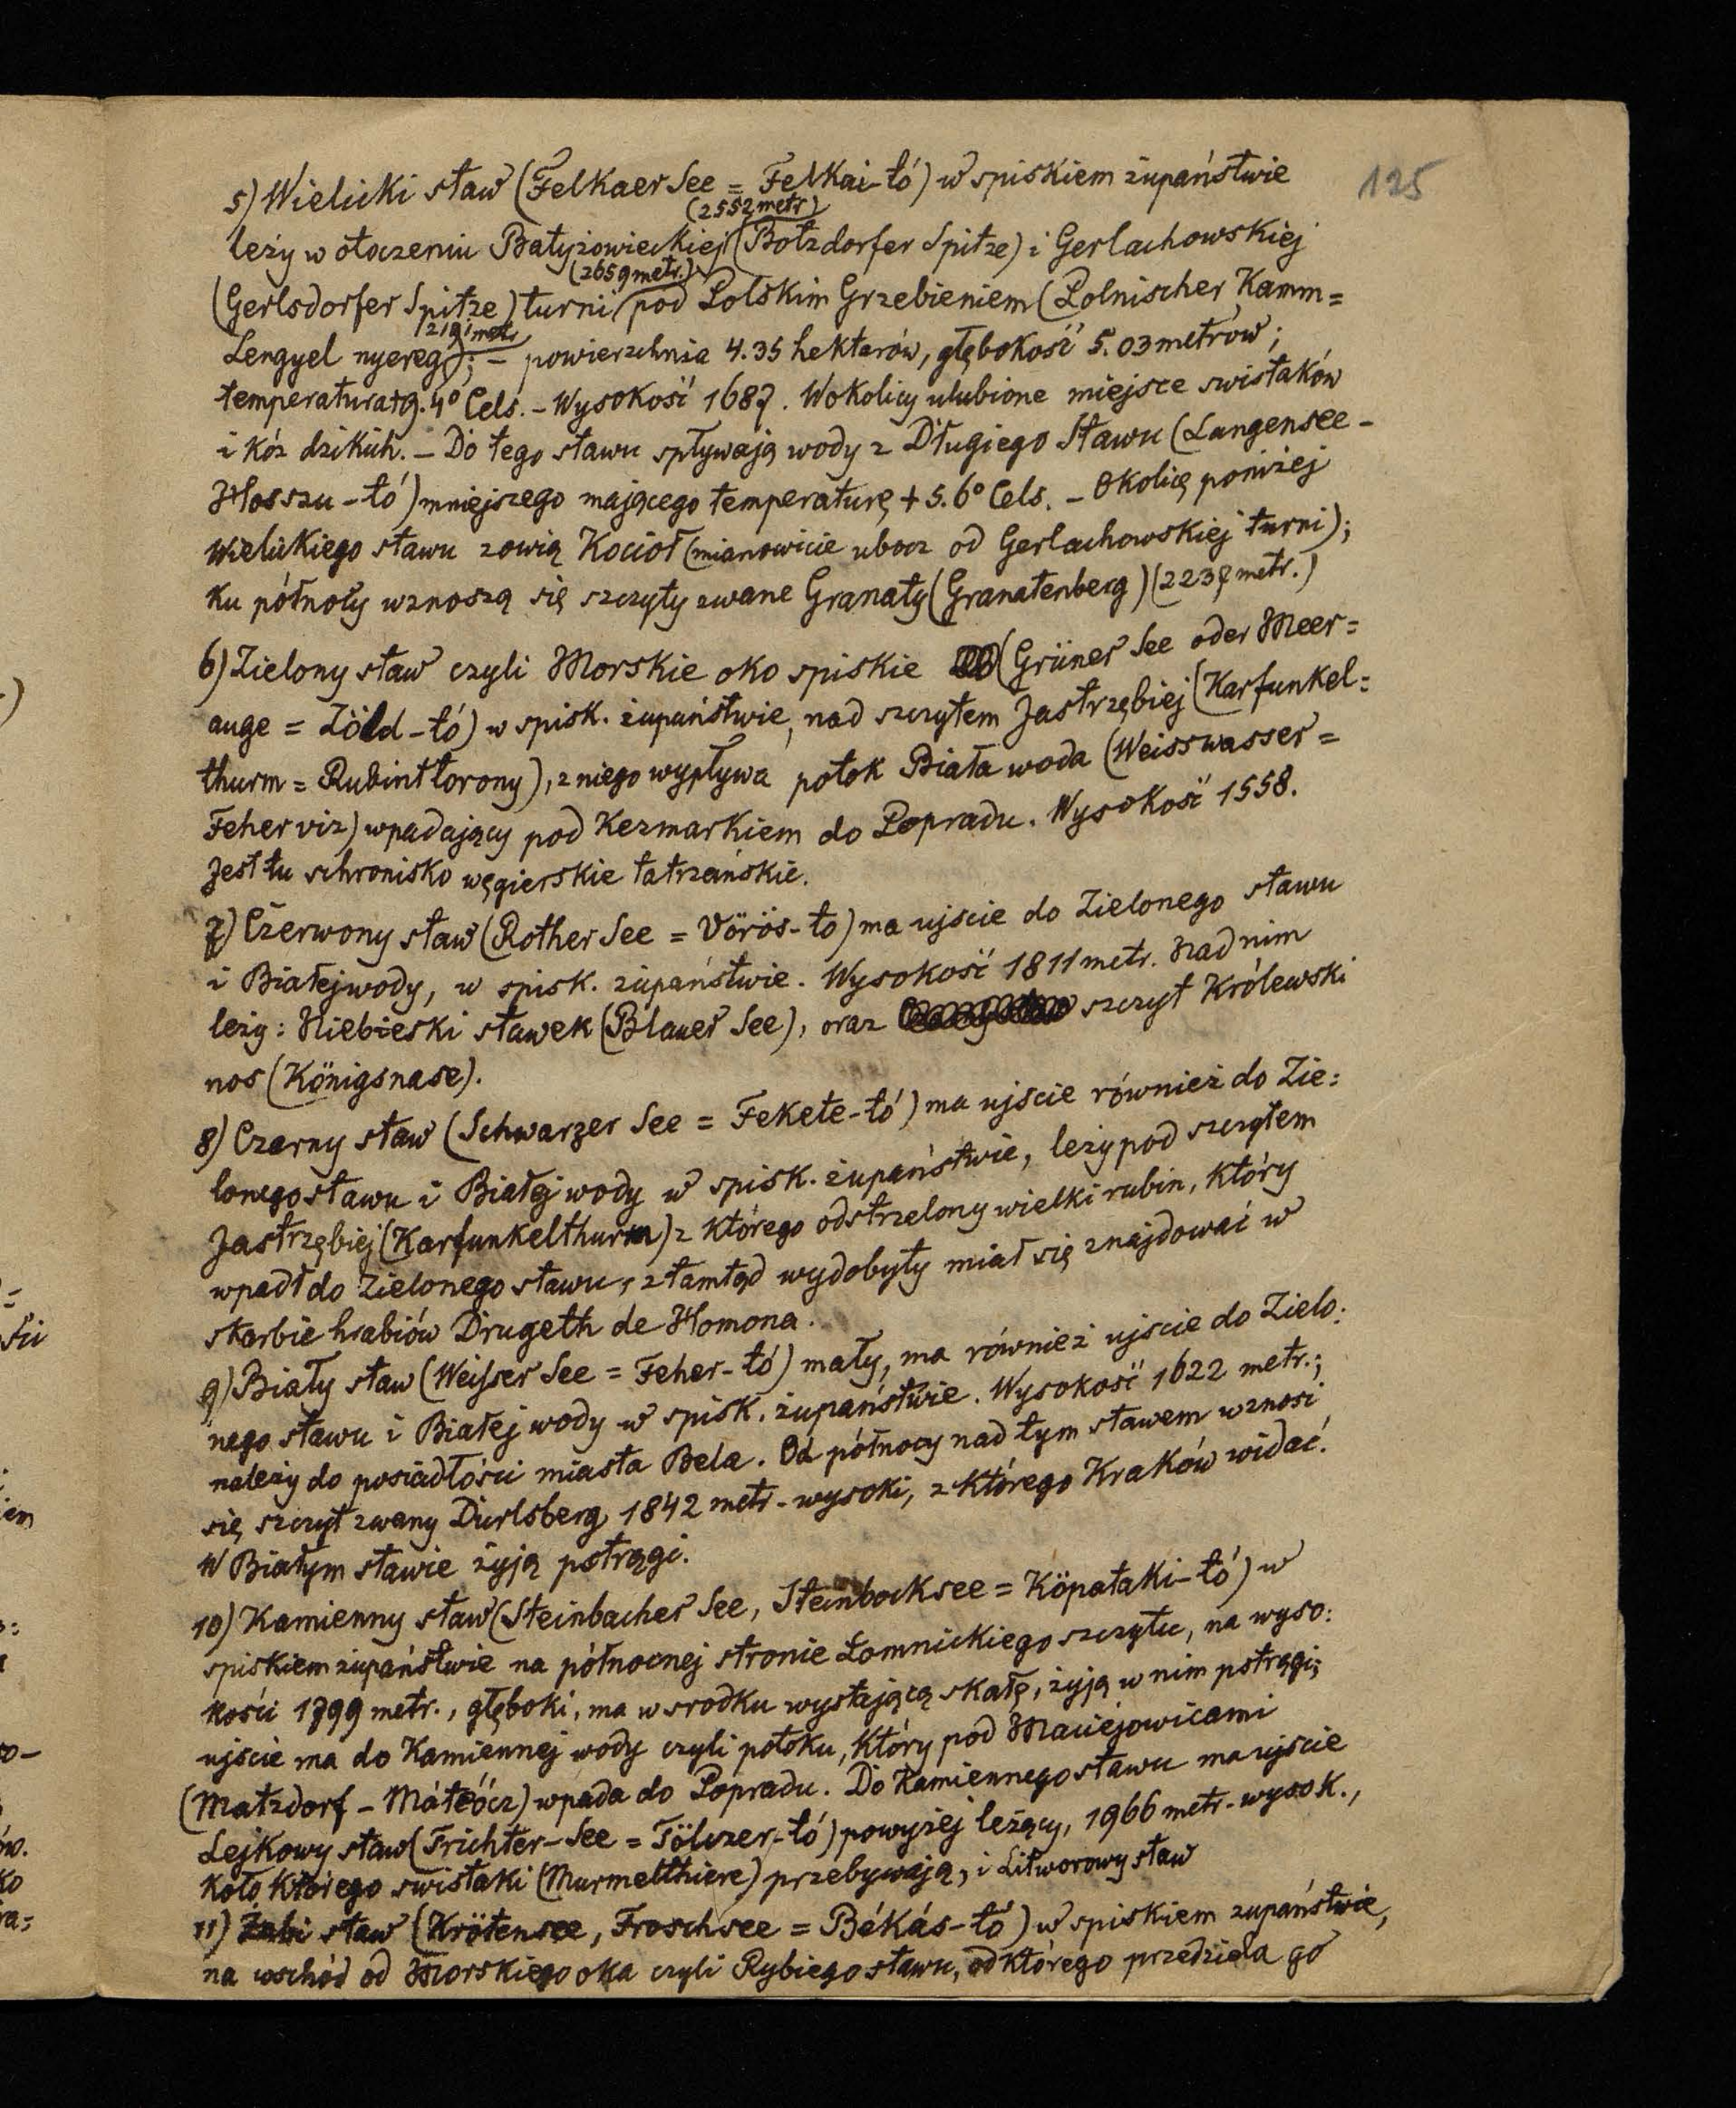 125
5) Wielicki staw (Felkaer See = Felkai-tó) w spiskiem żupaństwie
(2552 metr)
leży w otoczeniu Batyżowieckiej (Botzdorfer Spitze) i Gerlachowskiej
(2659 metr.)
(Gerlsdorfer Spitze) turni pod Polskim Grzebieniem (Polnischer Kamm =
metr
Lengyel nyereg); – powierzchnia 4.35 hektarów, głębokość 5.03 metrów;
temperatura +9.4° Cels. – Wysokość 1687. W okolicy ulubione miejsce swistaków
i kóz dzikich. – Do tego stawu spływają wody z Długiego Stawu (Langensee –
Hosszu-tó) mniejszego mającego temperaturę +5.6° Cels. – Okolicę poniżej
Wielickiego stawu zowią Kocioł (mianowicie ubocz od Gerlachowskiej turni);
ku północy wznoszą się szczyty zwane Granaty (Granatenberg) (2237 metr.)
6) Zielony staw czyli Morskie oko spiskie (Grüner See oder Meer=
auge = Zöld-tó) w spisk. żupaństwie, nad szczytem Jastrzębiej (Karfunkel=
thurm = Rubint torony), z niego wypływa potok Biała woda (Weisswasser =
Feher viz) wpadający pod Kezmarkiem do Popradu. Wysokość 1558.
Jest tu schronisko węgierskie tatrzańskie.
7) Czerwony staw (Rother See = Vörös-to) ma ujście do Zielonego stawu
i Białej wody, w spisk. żupaństwie. Wysokość 1811 metr. Nad nim
leży: Niebieski stawek (Blauer See), oraz szczyt Królewski
nos (Königsnase).
8) Czarny staw (Schwarzer See = Fekete-tó) ma ujście również do Zie=
lonego stawu i Białej wody w spisk. żupaństwie, leży pod szczytem
Jastrzębiej (Karfunkelthurm) z którego odstrzelony wielki rubin, który
wpadł do Zielonego stawu, ztamtąd wydobyty miał się znajdować w
skarbie hrabiów Drugeth de Homona.
9) Biały staw (Weisser See = Feher-tó) mały, ma również ujście do Zielo:
nego stawu i Białej wody w spisk. żupaństwie. Wysokość 1622 metr.;
należy do posiadłości miasta Bela. Od północy nad tym stawem wznosi
się szczyt zwany Durlsberg 1842 metr. wysoki, z którego Kraków widać.
W Białym stawie żyją pstrągi.
10) Kamienny staw (Steinbacher See, Steinbocksee = Köpataki-tó) w
spiskiem żupaństwie na północnej stronie Łomnickiego szczytu, na wyso:
kości 1799 metr., głęboki, ma w srodku wystającą skałę, żyją w nim pstrągi;
ujście ma do Kamiennej wody czyli potoku, który pod Maciejowicami
(Matzdorf – Máteócz) wpada do Popradu. Do Kamiennego stawu ma ujście
Lejkowy staw (Trichter-See = Tölczer-tó) powyżej leżący, 1966 metr. wysok.,
koło którego swistaki (Murmelthiere) przebywają, i Litworowy staw
11) Żabi staw (Krötensee, Froschsee = Békás-tó) w spiskiem żupaństwie,
na wschód od Morskiego oka czyli Rybiego stawu, od którego przedziela go